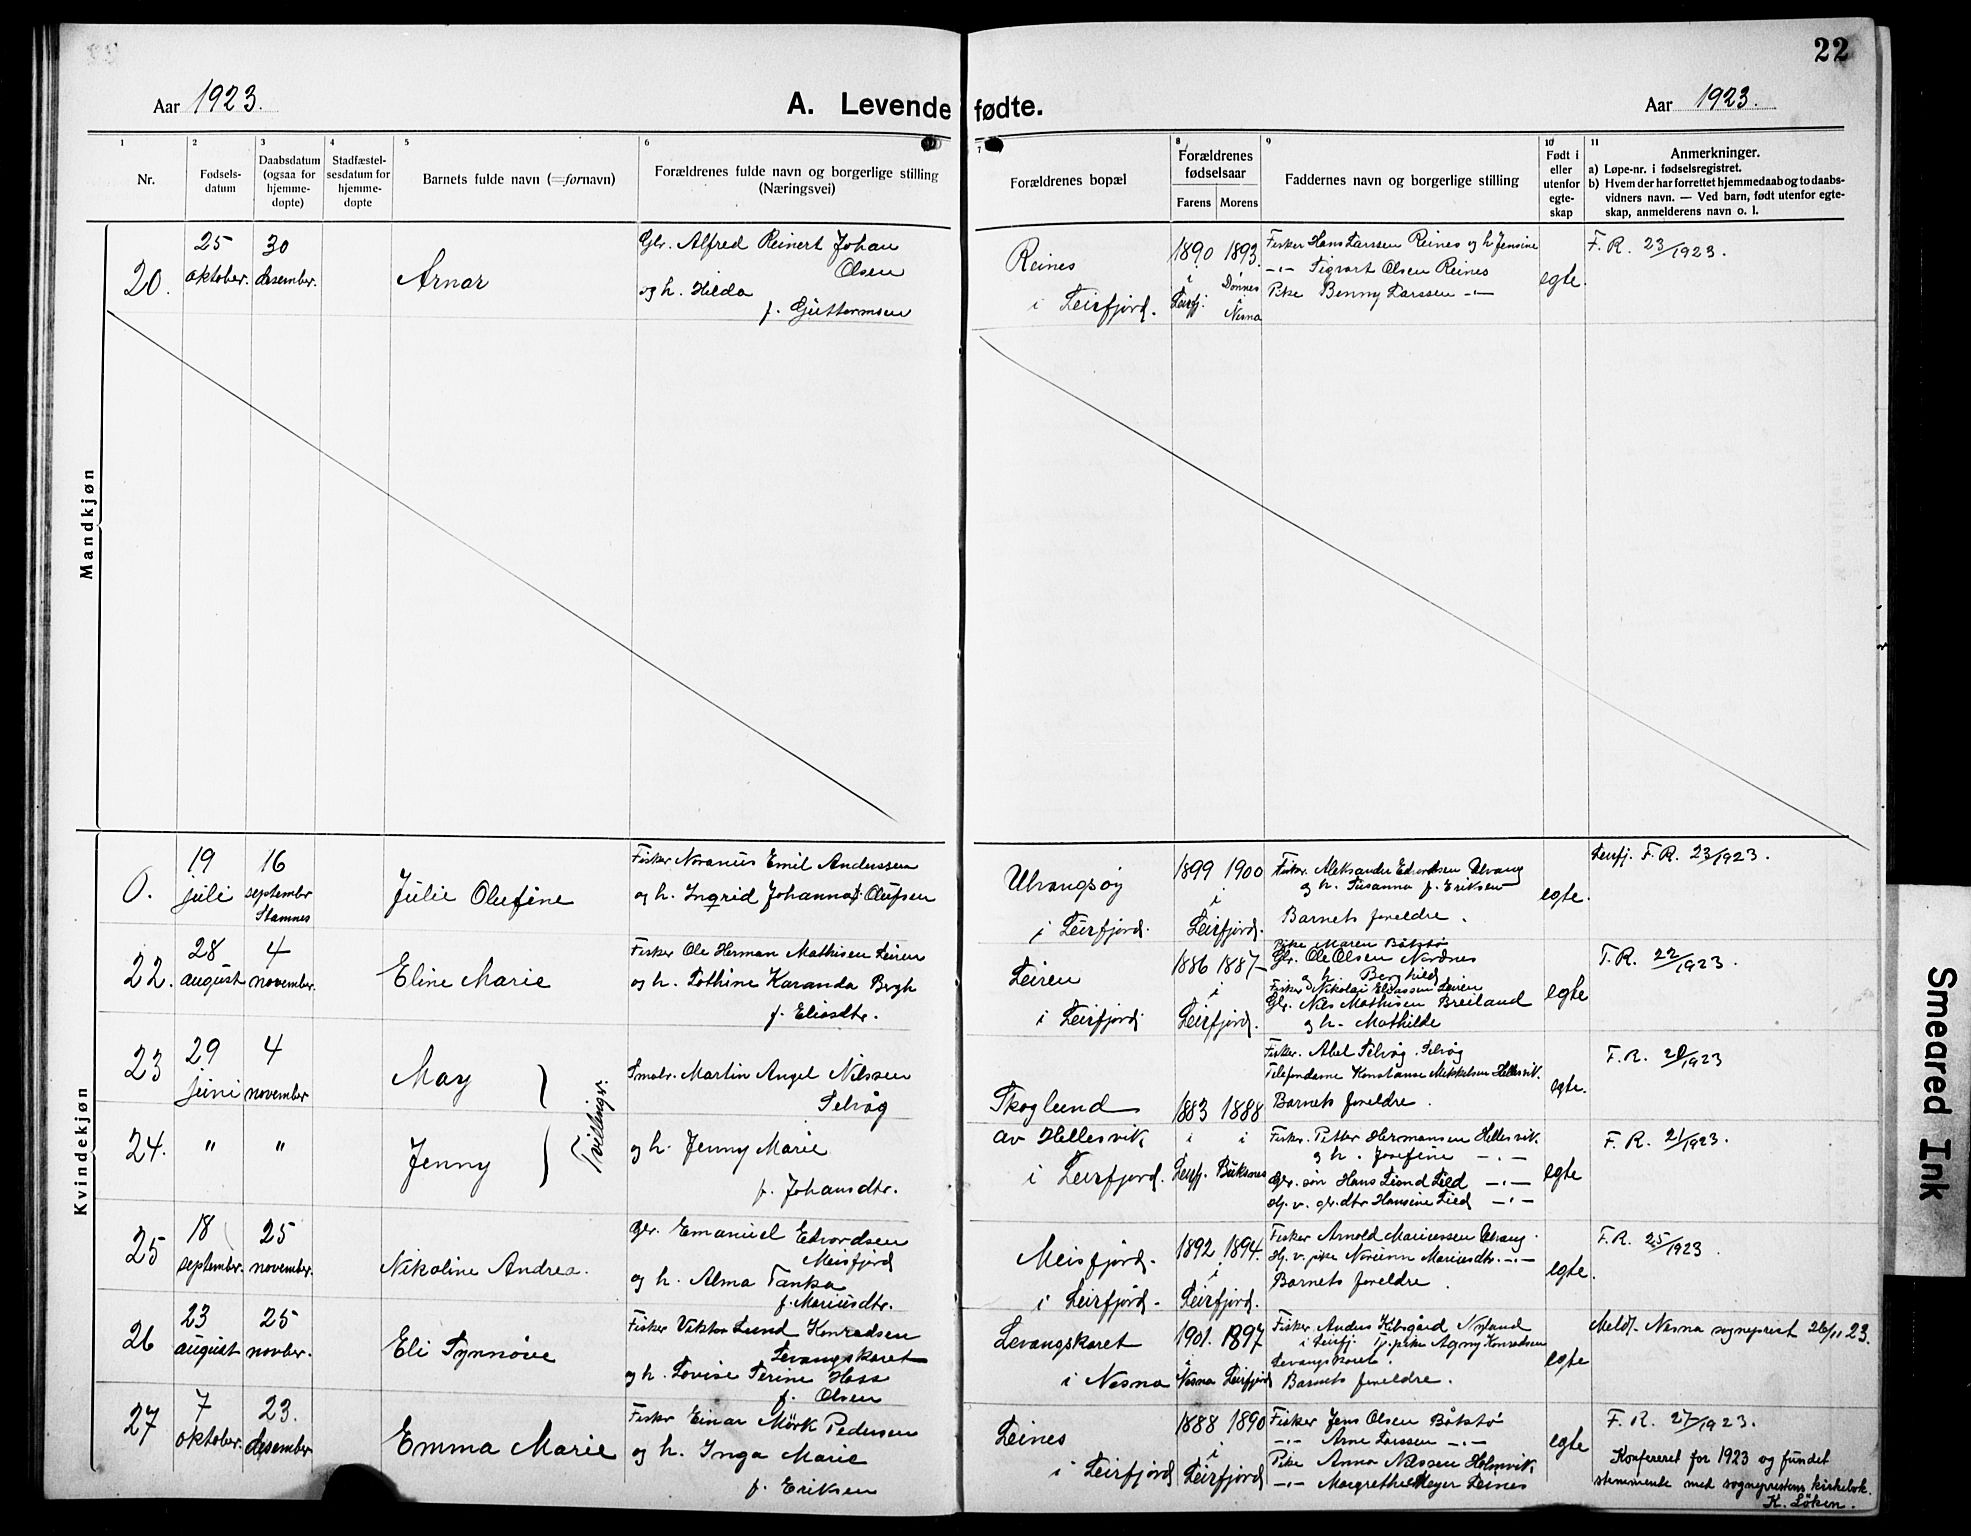 22
Aar 1923.
A. Levende fødte.
Aar 1923.
1
2
3
4
5
6
7
8
9
10
11
Nr.
Fødsels-
datum
Daabsdatum
(ogsaa for
hjemme-
døpte)
Stadfæstel-
sesdatum for
hjemme-
døpte
Barnets fulde navn (=fornavn)
Forældrenes fulde navn og borgerlige stilling
(Næringsvei)
Forældrenes bopæl
Forældrenes
fødselsaar
Farens
Morens
Faddernes navn og borgerlige stilling
Født i
eller
utenfor
egte-
skap
Anmerkninger.
a) Løpe-nr. i fødselsregistret.
b) Hvem der har forrettet hjemmedaab og to daabs-
vidners navn. — Ved barn, født utenfor egte-
skap, anmelderens navn o. l.
Mandkjøn
20.
25
oktober.
30
desember.
Arnar
Gbr. Alfred Reinert Johan
Olsen
og h. Hilda
f. Guttormsen
Reines
i Leirfjord.
1890
i
Leirfj.
1893.
Dønnes
i
Nesna
Fisker Hans Larssen Reines og h. Jensine
-"- Sigvart Olsen Reines
Pike Benny Larssen -"-
egte.
F. R. 23/1923.
Kvindekjøn
0.
19
juli
16
septembr
Stamnes
Julie Olufine
Fisker Noranus Emil Anderssen
og h. Ingrid Johanna f. Olufsen
Ulvangsøy
i Leirfjord.
1899 1900
i
Leirfjord.
Fisker. Aleksander Edvardsen Ulvang
og h. Susanna f. Eriksen
Barnets foreldre.
egte.
Leirfj. F. R. 23/1923.
22.
28
august
4
november.
Eline Marie
Fisker Ole Herman Mathisen Leiren
og h. Lothine Karanda Bergh
f. Eliasdtr.
Leiren
i Leirfjord
1886 1887
i
Leirfjord.
Pike Maren Båtstø
Gbr. Ole Olsen Nordnes
og h. Berghild
Fisker Nikolai Eliassen Leiren
Gbr. Nils Mathisen Breiland
og h. Mathilde
egte
F. R. 22/1923.
23
29
juni
4
november
May
Tvillinger.
Smabr. Martin Angel Nilssen
Selvåg
Skoglund
av Hellesvik
i Leirfjord.
1883 1888
i i
Leirfj. Buksnes
Fisker. Abel Selvåg. Selvåg
Telefondame Konstanse Mikkelsen Hellesvik.
Barnets foreldre.
egte.
F. R. 20/1923
24.
"
"
Jenny
og h. Jenny Marie
f. Johansdtr.
Fisker. Petter Hermansen Hellesvik.
og h. Josefine -"-
Gbr. søn Hans Leond Lied -"-
Hj. v. gbr. dtr Hansine Lied -"-
egte
F. R. 21/1923.
25
18
september.
25
november.
Nikoline Andrea.
Gbr. Emanuel Edvardsen
Meisfjord
og h. Alma Tanka
f. Mariusdtr.
Meisfjord.
i Leirfjord.
1892 1894.
i
Leirfjord.
Fisker Arnold Mariussen Ulvang.
Hj. v. pike Noriann Mariusdtr. -"-
Barnets foreldre.
egte.
F. R. 25/1923.
26
23
august
25
novber.
Eli Synnøve
Fisker Viktor Lund Konradsen
Levangskaret
og h. Lovise Serine Hass
f. Olsen
Levangskaret
i Nesna
1901. 1897
i
Nesna Leirfjord
Fisker Anders Hibsgård Nyland
i Leirfj. Tj. pike Agny Konradsen
Levangskaret.
Barnets foreldre.
egte
Meldt. Nesna sogneprest 26/11 23.
27
7
oktober.
23.
desember
Emma Marie
Fisker Einar Mørk Pedersen
og h. Inga Marie
f. Eriksen
Leines
i Leirfjord
1888 1890
i
Leirfjord
Fisker Jens Olsen Båtstø
-"- Arne Larssen -"-
Pike Anna Nilssen Holmvik
-"- Margrethe Meyer Leines
egte
F. R. 27/1923.
Konfereret for 1923 og fundet
stemmende med sogneprestens kirkebok.
K. Løken.
Smeared Ink